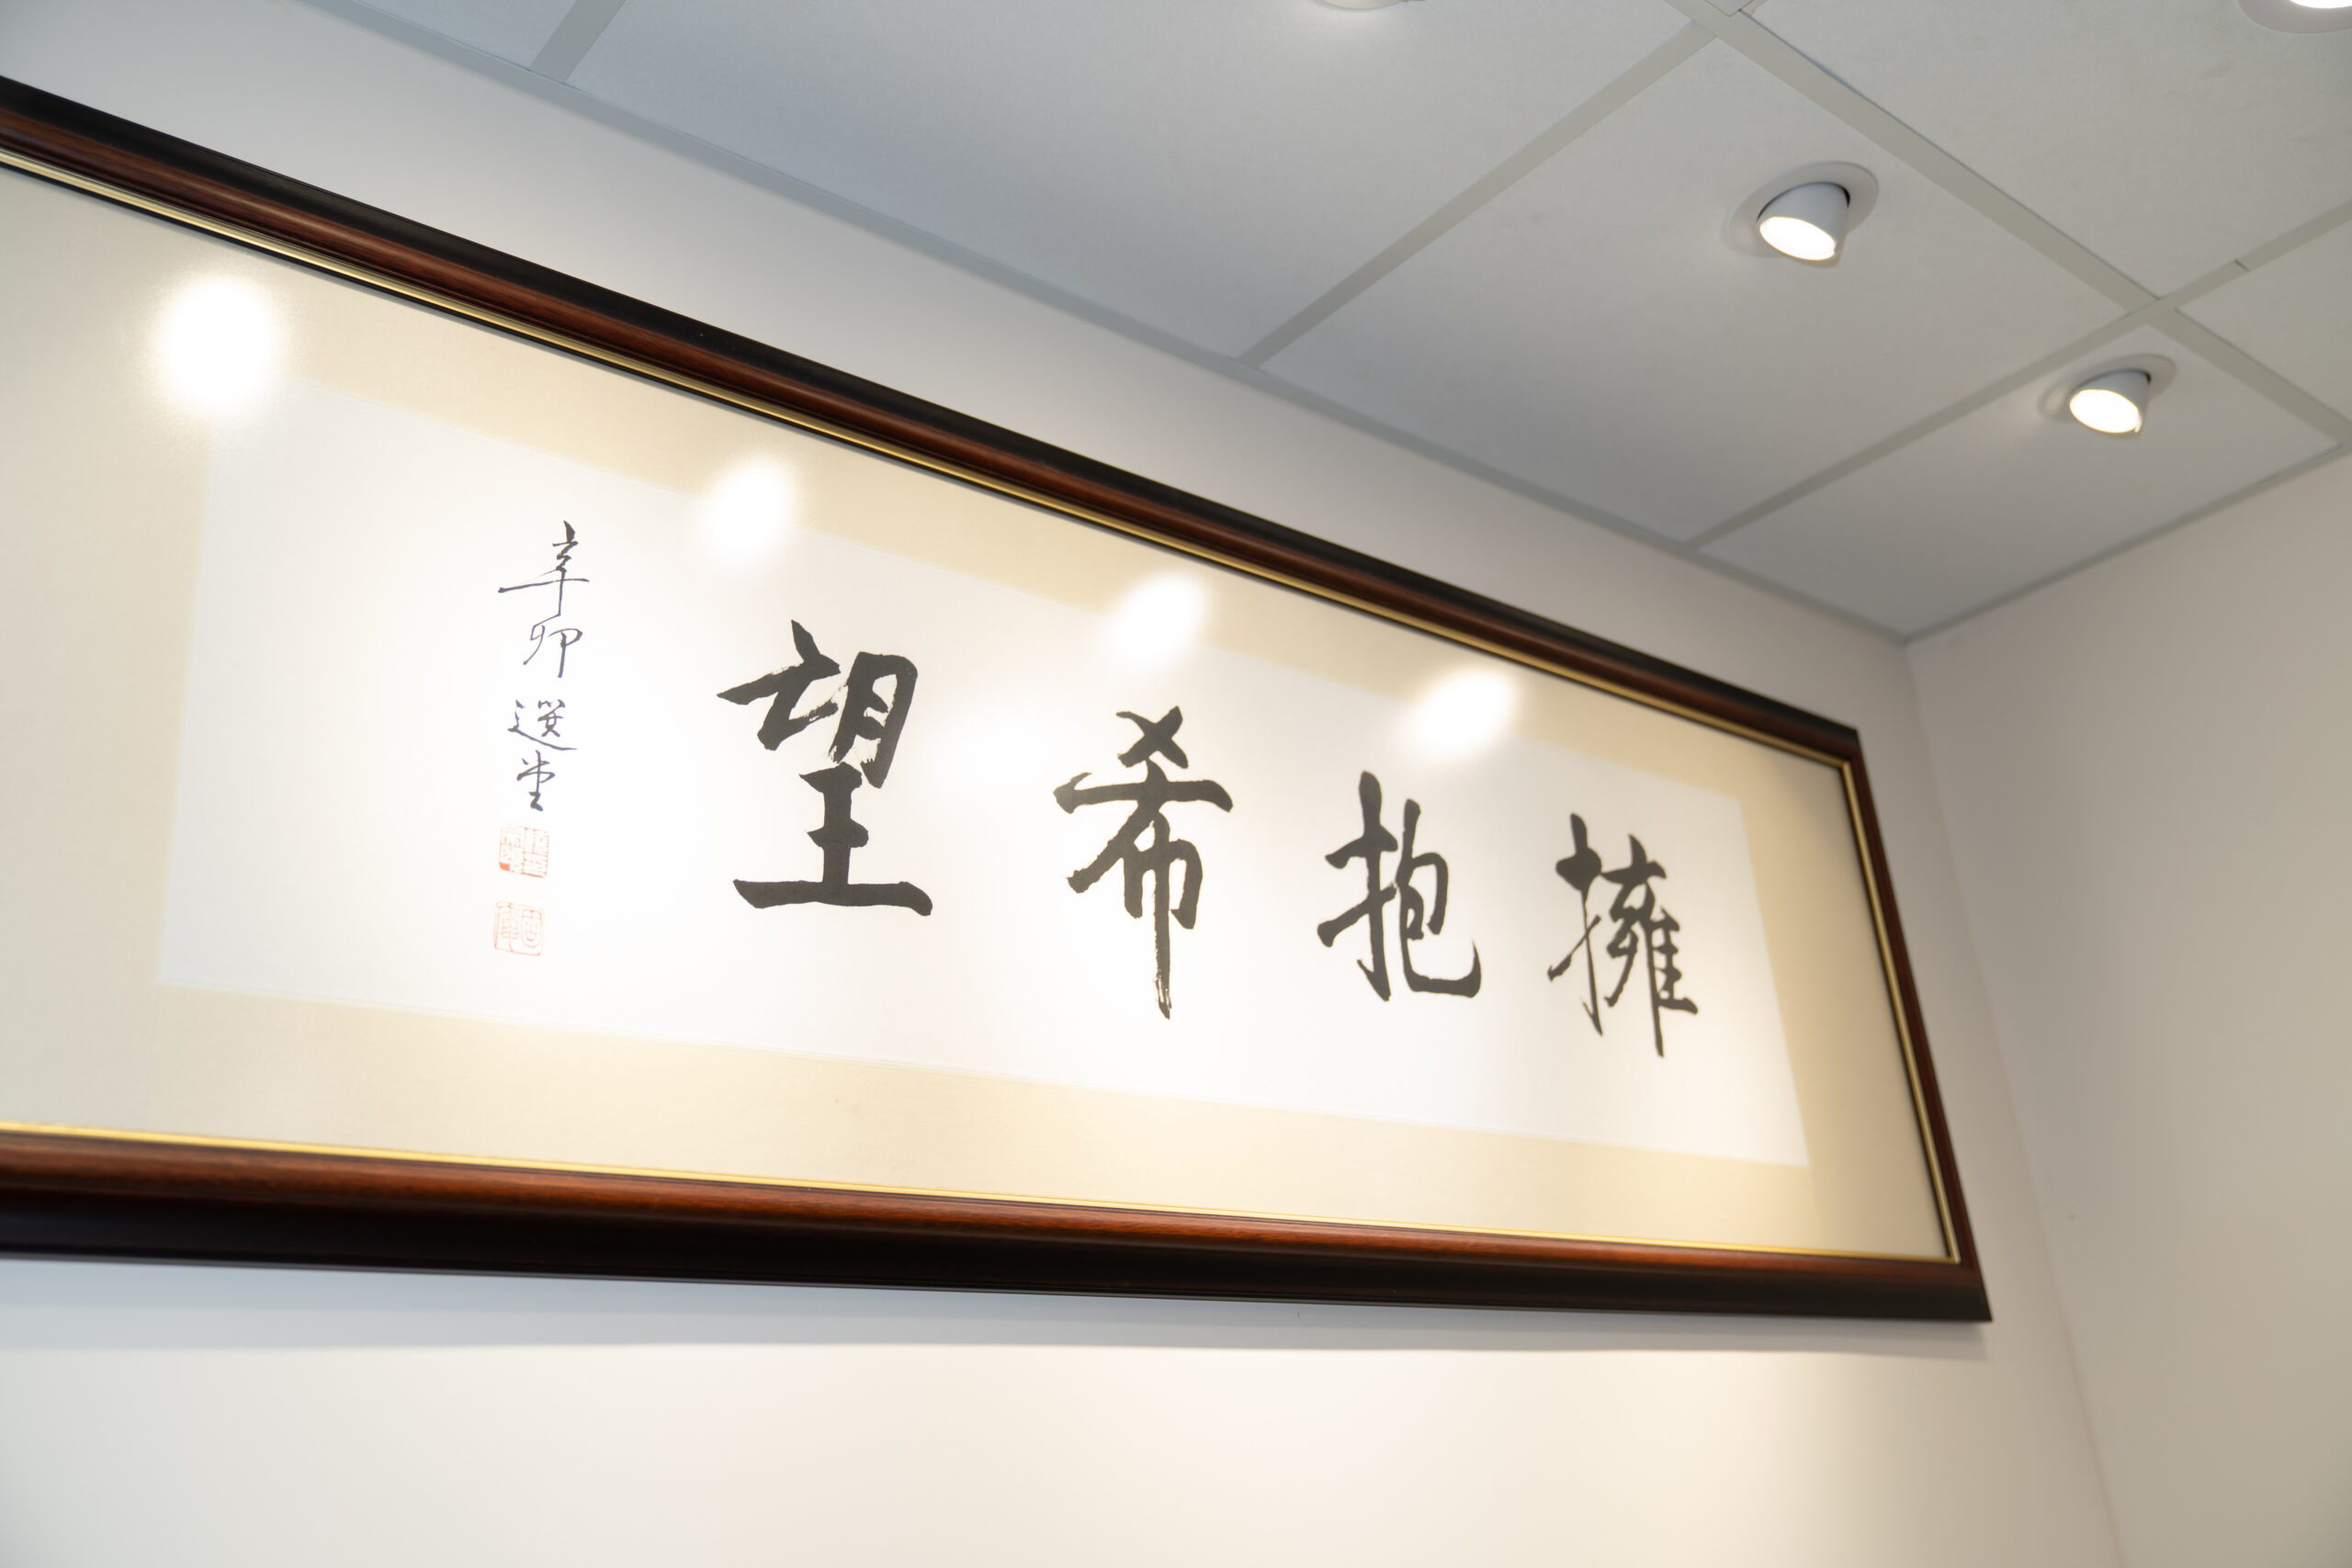 擁抱希望
辛卯 選堂